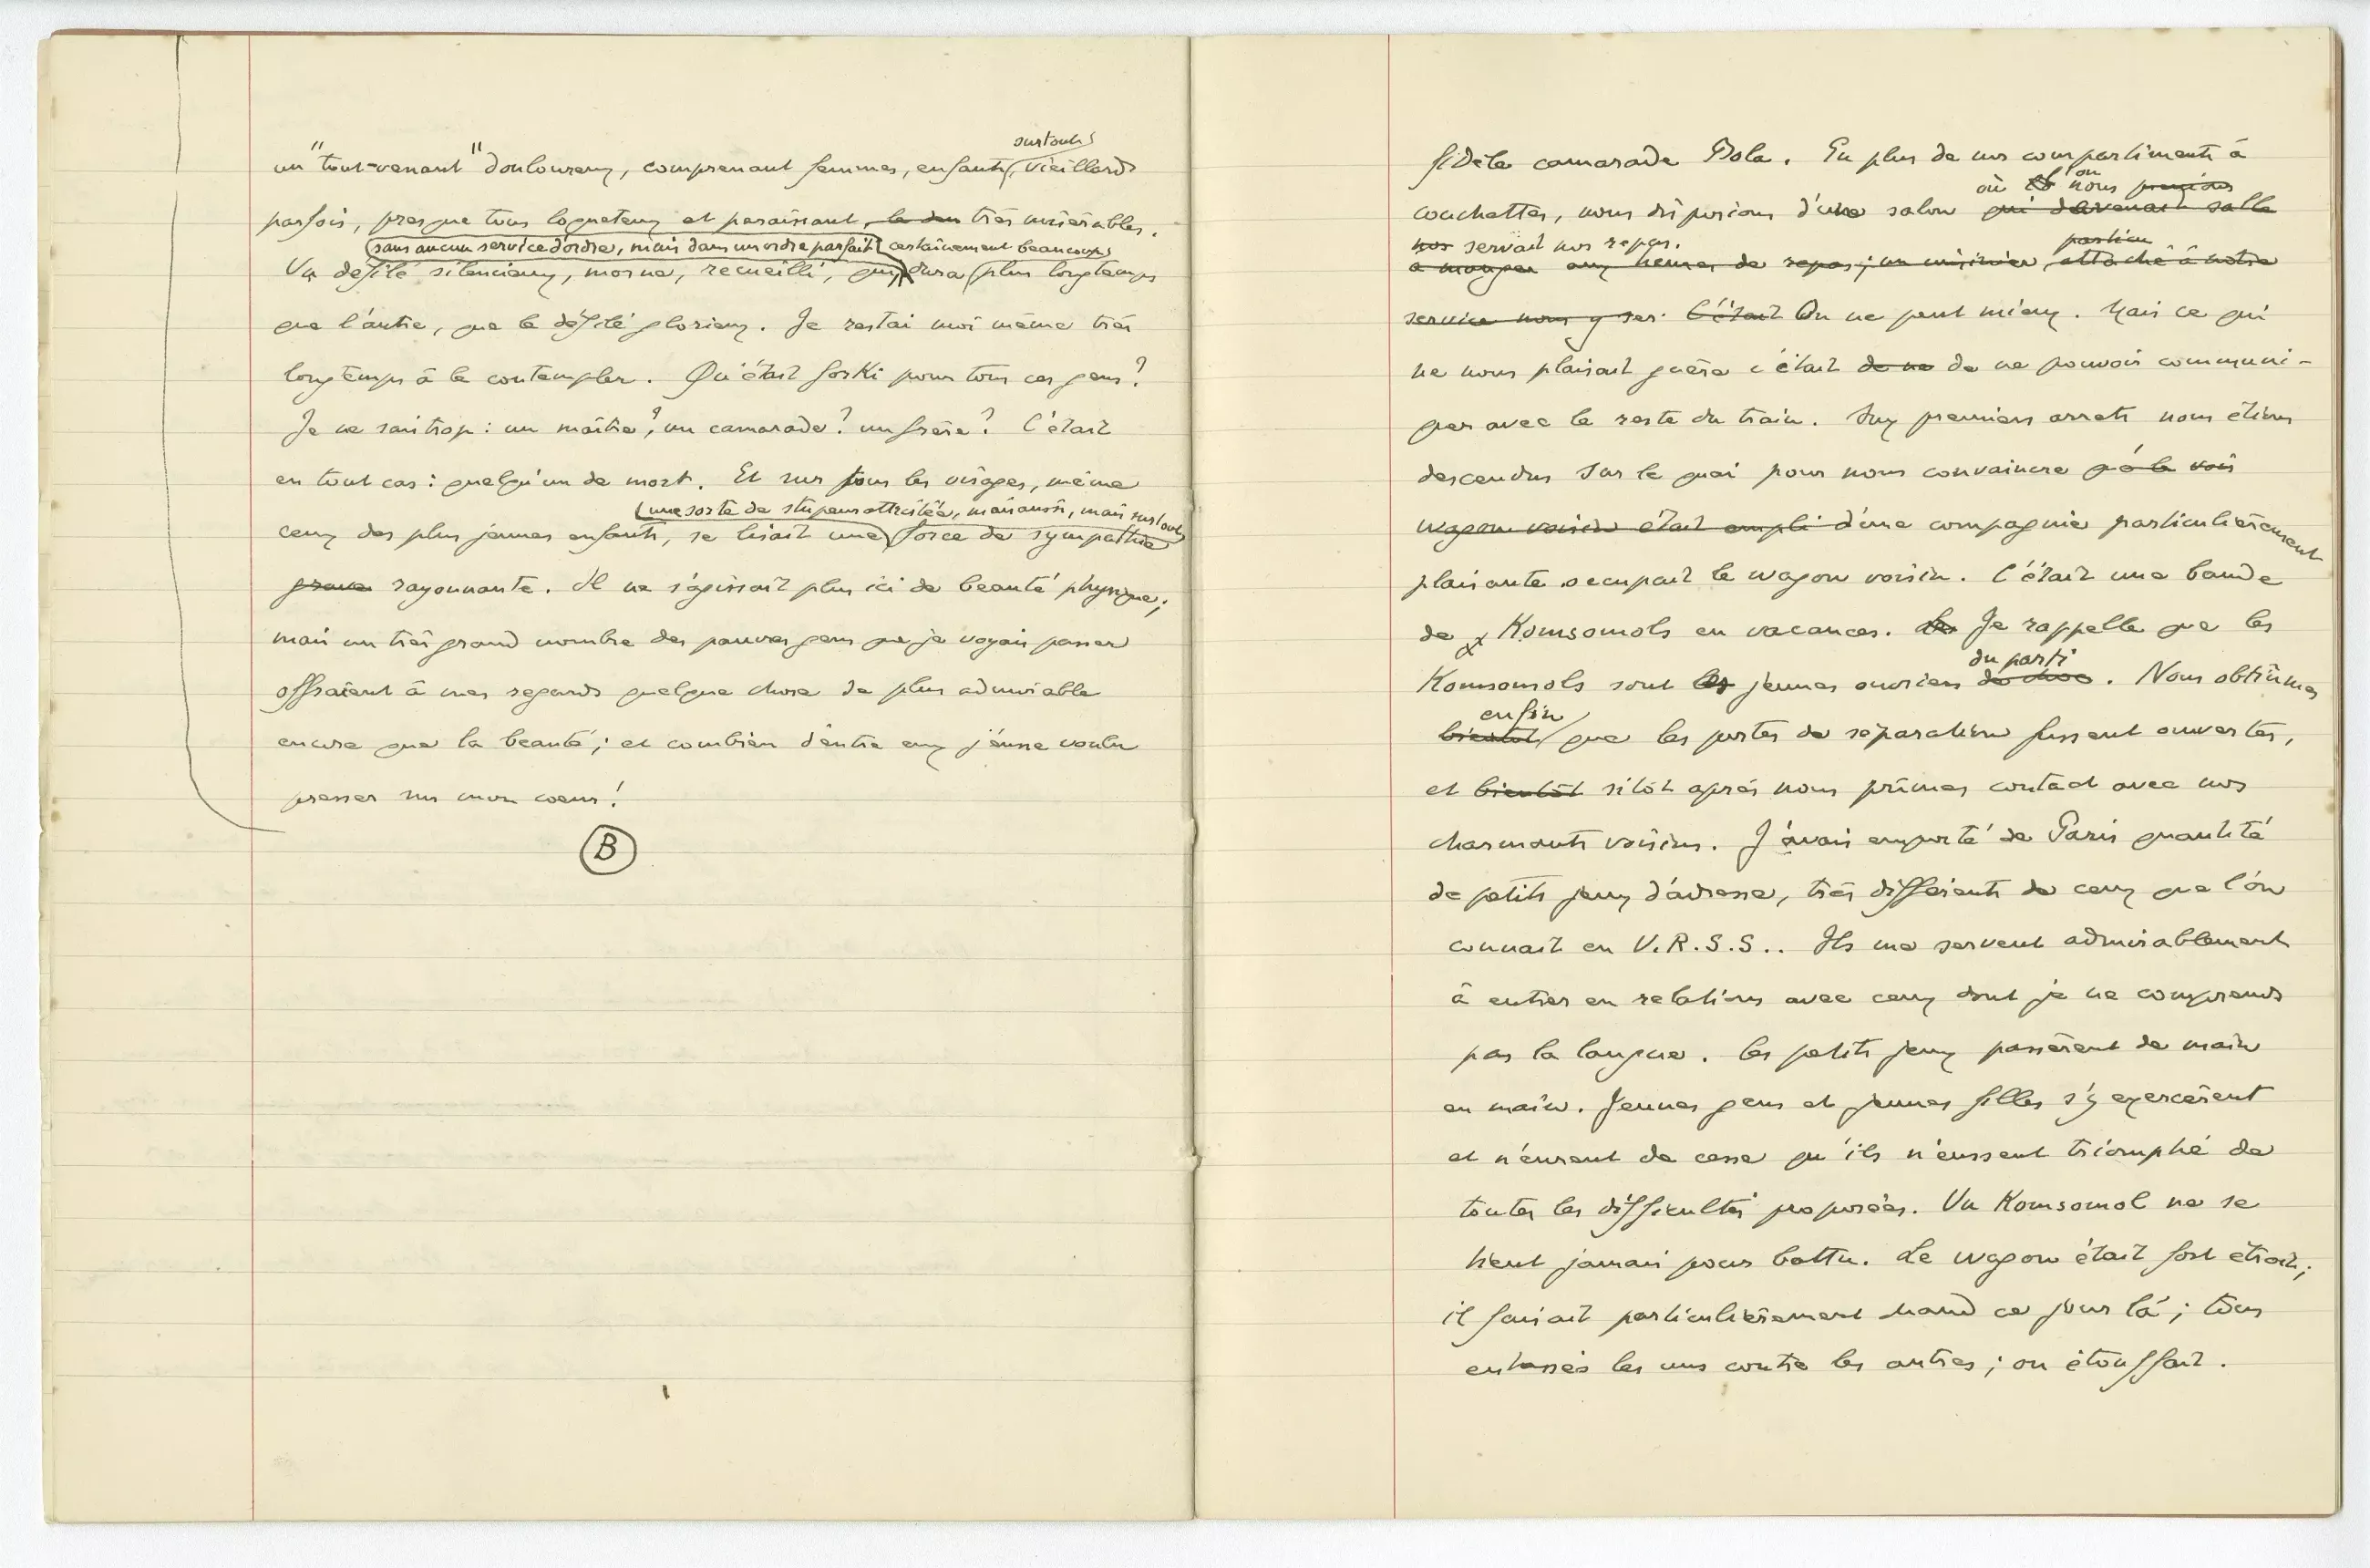 surtout
un "tout-venant" douloureux, comprenant femmes, enfants, vieillards
parfois, presque tous loqueteux et paraissant, très misérables.
sans aucun service d'ordre, mais dans un ordre parfait, certainement beaucoup
Un défilé silencieux, morne, recueilli, qui dura plus longtemps
que l'autre, que le défilé glorieux. Je restai moi même très
longtemps à le contempler. Qu'était Gorki pour tous ces gens?
Je ne sais trop: un maître? un camarade? un frère? C'était
en tout cas: quelqu'un de mort. Et sur tous les visages, même
une sorte de stupeur attristée, mais aussi, mais surtout
ceux des plus jeunes enfants, se lisait une force de sympathie
grave rayonnante. Il ne s'agissait plus ici de beauté physique;
mais un très grand nombre des pauvres gens que je voyais passer
offraient à mes regards quelque chose de plus admirable
encore que la beauté; et combien d'entre eux j'eusse voulu
presser sur mon coeur!
B
fidèle camarade Bola. En plus de nos compartiments à
on
où nous prenions
couchettes, nous disposions d'une salon qui devenait salle
nos servait nos repas.
particu
à manger aux heures de repas; un cuisinier attaché à notre
service nous y ser C'était On ne peut mieux. Mais ce qui
ne nous plaisait guère c'était de ne de ne pouvoir communi-
quer avec le reste du train. Aux premiers arrets nous étions
descendus sur le quai pour nous convaincre q'à le vois
wagon voisin était empli d'une compagnie particulièrement
plaisante occupait le wagon voisin. C'était une bande
de x Komsomols en vacances. Les Je rappelle que les
du parti
Komsomols sont les jeunes ouvriers de choc. Nous obtînmes
enfin
bientôt que les portes de séparation fussent ouvertes,
et bientôt sitôt après nous prîmes contact avec nos
charmants voisins. J'avais emporté de Paris quantité
de petits jeux d'adresse, très différents de ceux que l'on
connait en U.R.S.S.. Ils me servent admirablement
à entrer en relations avec ceux dont je ne comprends
pas la langue. Les petits jeux passèrent de main
en main. Jeunes gens et jeunes filles s'y exercèrent
et n'eurent de cesse qu'ils n'eussent triomphé de
toutes les difficultés proposées. Un Komsomol ne se
tient jamais pour battu. Le wagon était fort étroit;
il faisait particulièrement chaud ce jour là; tous
entassés les uns contre les autres; on étouffait.